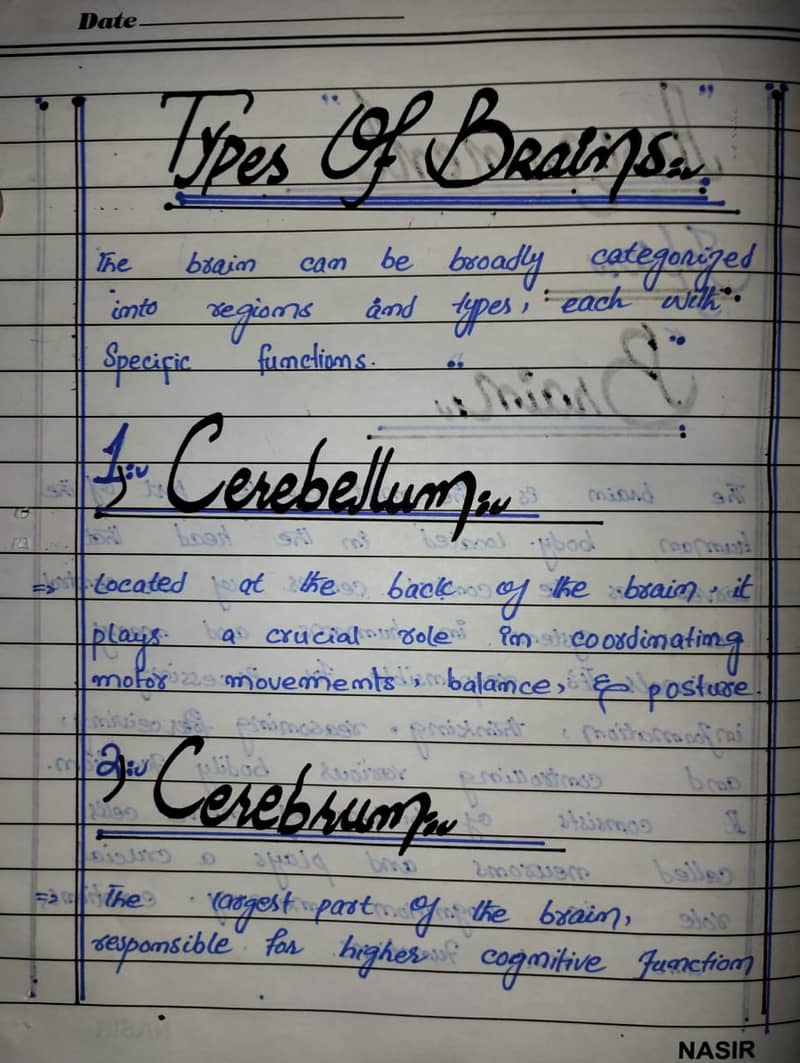 Date
Types Of Brains:
The brain can be broadly categorized
into regions and types, each with
Specific functions.
1): Cerebellum:
=> Located at the back of the brain. it
plays a crucial role in coordinating
motor movements, balance, & posture.
2): Cerebrum:
=> The largest part of the brain,
responsible for higher cognitive function
NASIR